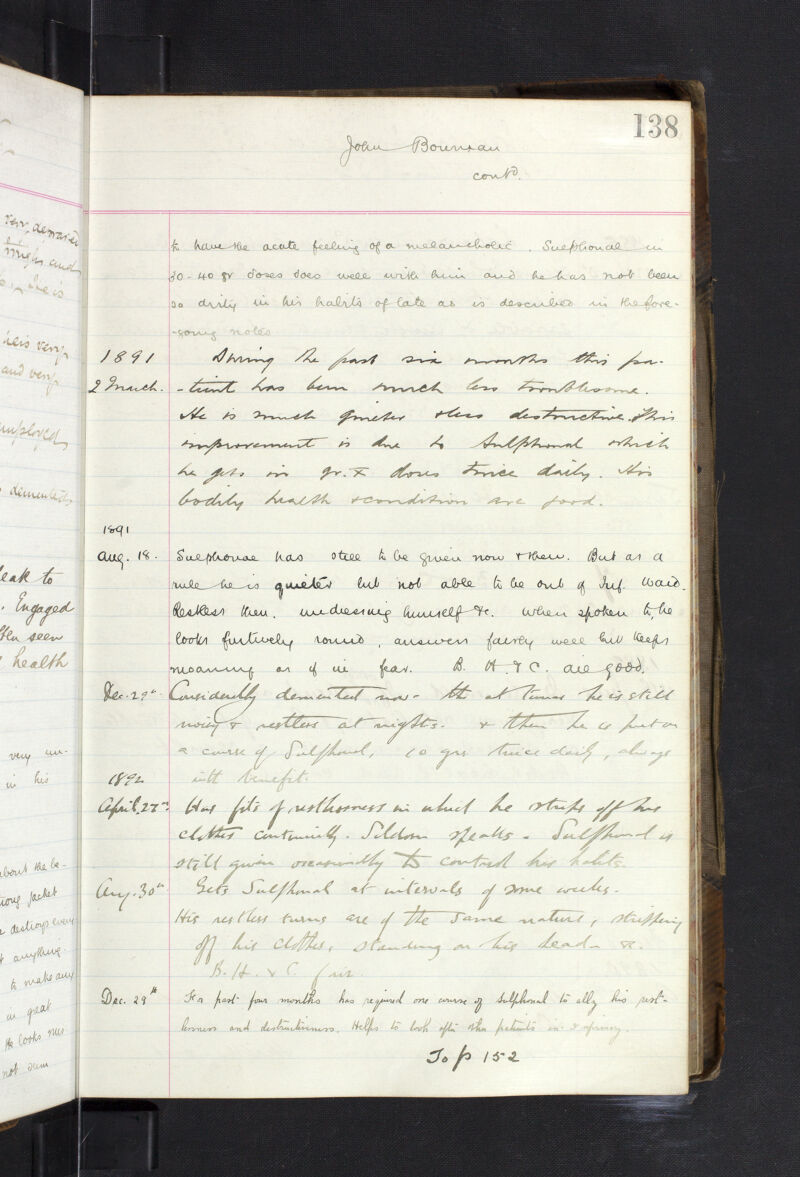 138
John Bowman
contd.
to have the acute feeling of a melancholic. Sulphonal in
30-40 gr doses does well with him and he has not been
so dirty in his habits of late as is described in the fore-
-going notes
1891 During the past six months this pa-
2 March. -tient has been much less troublesome.
He is much quieter & less destructive. This
improvement is due to Sulphonal which
he gets in gr. X doses twice daily. His
bodily health & condition are good.
1891
Aug. 18. Sulphonal has still to be given now & then. But as a
rule he is quieter but not able to be out of Inf. Ward.
Restless then. undressing himself &c. When spoken to, he
looks furtively round, answers fairly well but keeps
moaning as if in fear. B. H. & C. are good.
Dec. 29th Considerably demented now. at times he is still
noisy & restless at nights. & then he is put on
a course of Sulphonal, 10 grs twice daily, always
1892 with benefit.
April. 27th Has fits of restlessness in which he strips off his
clothes continually. Seldom speaks. Sulphonal is
still given occasionally to control his habits.
Aug. 30th Gets Sulphonal at intervals of some weeks.
His restless turns are of the same nature, stripping
off his clothes, standing on his head &c.
B. H. & C. fair.
Dec. 29th For past four months has required one course of sulphonal to allay his rest-
lessness and destructiveness. Helps to look after other patients in
To p 152
very demented
and
he is
he is very
and very
employed
demented
leak to
. Engaged
seen
health
very un-
in his
about the be-
jacket
destroys every
anything
to make any
in great
He looks
not seem